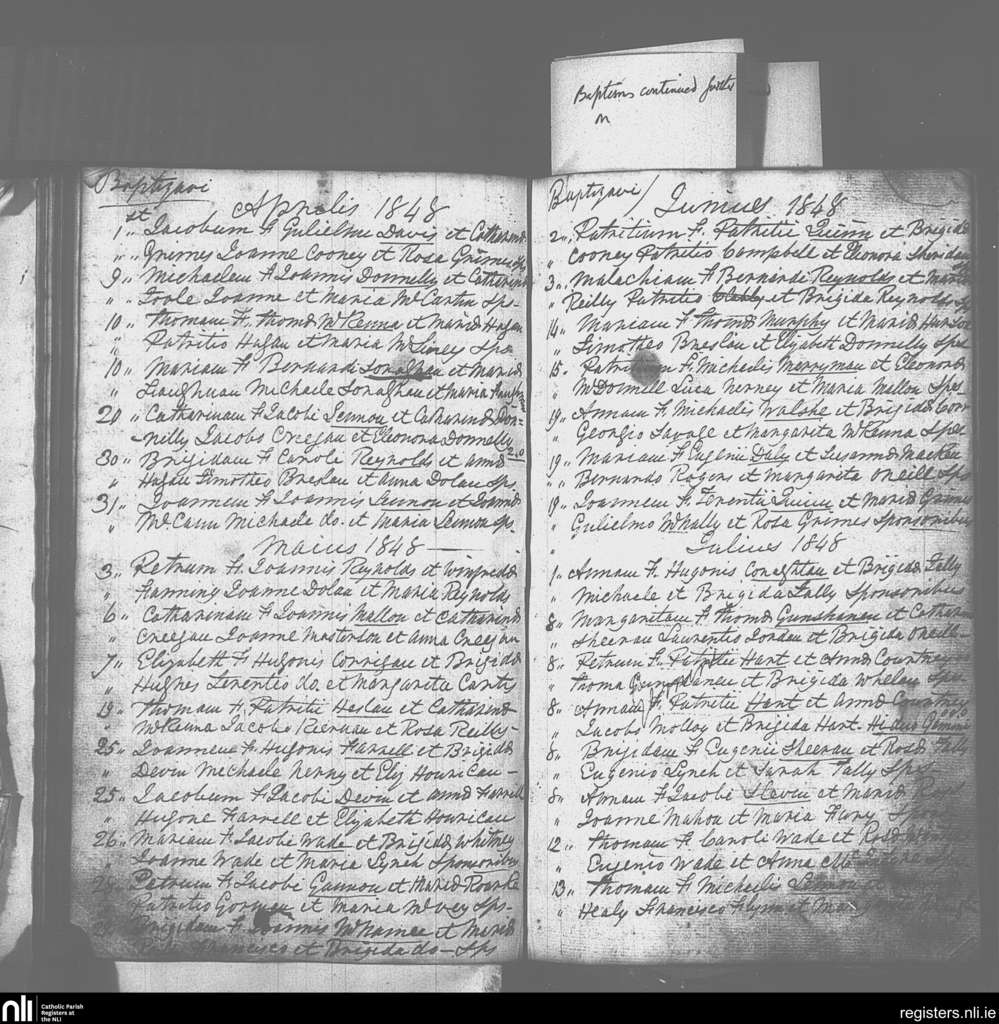 Baptisms continued further
on
Baptizavi
Aprielis 1848
1st Jacobum F Gulielmi Davis et Catharinæ
" " Grimes Joanne Cooney et Rosa Grimes
9 " Michaelem F Joannis Donnelly et Catherinæ
" Toole Joanne et Maria McCartin Sps-
10 " Thomam F. Thomæ McKenna et Mariæ Hagan
" Patritio Hagan et Maria Sps
10 " Mariam F Bernardi Lonaghan et Mariæ
" Michaele Lonaghan et Maria
20 " Catharinam F Jacobi Lennon et Catharinæ Don-
-nilly Jacobo Creegan et Eleonora Donnelly
30 " Brigidam F Caroli Reynolds et Annæ
" Hagan Timotheo Breslau et Anna Dolan Sps.
31 " Joannem F Joannis Lennon et Joannæ
" McCann Michaele do. et Maria Lennon Sps.
Maius 1848
3 " Petrum F. Joannis Reynolds et Winifridæ
" Fanning Joanne Dolan et Maria Reynolds
6 " Catharinam F Joannis Mallon et Catharinæ
" Creegan Joanne Masterson et Anna Creegan
7 " Elizabeth F Hugonis Corrigan et Brigidæ
" Hughes Terentio do. et Margareta Carty
19 " Thomam F. Patritii Heslan et Catharinæ
" McKenna Jacobo Kiernan et Rosa Reilly-
25 " Joannem F. Hugonis Farrell et Brigidæ
" Devin Michaele Nerny et Eliz Hourican-
25 " Jacobum F Jacobi Devin et Annæ Farrell
" Hugone Farrell et Elizabeth Hourican
26 " Mariam F Jacobi Wade et Brigidæ Whitney
" Joanne Wade et Maria Lynch Sponsoribus
Petrum F Jacobi Gannon et Mariæ Roarke
Patritio Gorman et Maria McVey Sps-
Brigidam F. Joannis McNamee et Mariæ
Francisco et Brigida do- Sps
Baptizavi / Junius 1848
2 " Patritium F. Patritii Quinn et Brigidæ
" Cooney Patritio Campbell et Eleonora Sheridan
3 " Malachiam F Bernardi Reynolds et Mariæ
" Reilly Patritio et Brigida Reynolds Sps
14 " Mariam F Thomæ Murphy et Mariæ
" Timotheo Breslau et Elizabeth Donnelly Sps
15 " Patritium F. Michaelis Merryman et Eleonoræ
" McDonnell Luca Nerney et Maria Mallon Sps
19 " Annam F. Michaelis Walshe et Brigidæ
" Georgio Savage et Margarita McKenna Sps
19 " Mariam F Eugenii Daly et Susannæ
" Bernardo Rogers et Margareta ONeill Sps
19 " Joannem F. Terentii Quinn et Mariæ Grimes
Gulielmo McNally et Rosa Grimes Sponsoribus
Julius 1848
1 " Annam F. Hugonis Conaghtan et Brigidæ Tally
" Michaele et Brigida Tally Sponsoribus
8 " Margaritam F Thomæ Gunshanan et Catharinæ
" Sheeran Laurentio Jordan et Brigida ONeill-
8 " Petrum F. Patritii Hart et Annæ Courtney
" Thoma Gunshanan et Brigida Whelan Sps
8 " Annam F. Patritii Hart et Annæ Courtney
" Jacobo Molloy et Brigida Hart. Hi duo Gemini
8 " Brigidam F Eugenii Sheeran et Rosæ Tally
" Eugenio Lynch et Sarah Tally Sps
8 " Annam F Jacobi Slevin et Mariæ
" Joanne Mahon et Maria
12 " Thomam F. Caroli Wade et Rosæ
" Eugenio Wade et Anna
13 " Thomam F Michaelis Lennon et
" Healy Francisco Flynn et
nli
Catholic Parish
Registers at
the NLI
registers.nli.ie